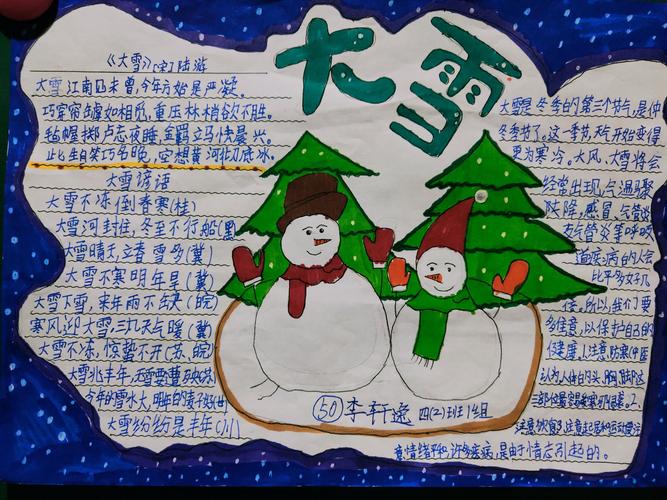 大雪
《大雪》[宋]陆游
大雪江南见未曾,今年方始是严凝。
巧穿帘罅如相觅,重压林梢欲不胜。
毡幄掷卢忘夜睡,金羁立马快晨兴。
此生自笑功名晚,空想黄河彻底冰。
大雪谚语
大雪不冻倒春寒(桂)
大雪河封住,冬至不行船(黑)
大雪晴天,立春雪多(冀)
大雪不寒明年旱(冀)
大雪下雪,来年雨不缺(皖)
寒风迎大雪,三九天气暖(冀)
大雪不冻,惊蛰不开(苏、皖)
大雪兆丰年,无雪要遭
今年的雪水大,明年的麦子好
大雪纷纷是丰年(川)
大雪是冬季的第三个节气,是仲
冬季节了。这一季节,天气开始变得
更为寒冷。大风、大雪将会
经常出现,气温骤
跌降,感冒、气管炎
支气管炎等呼吸
道疾病的人会
比平多好几
倍。所以,我们要
多注意,以保护自己的
健康。1.注意防寒,中医
认为人体的头、胸、脚这
三部位最容易受寒
注意饮食3.注意起居和运动
意情绪平和,许多疾病,是由于情志引起的。
50 李轩逸 四(2)班14组